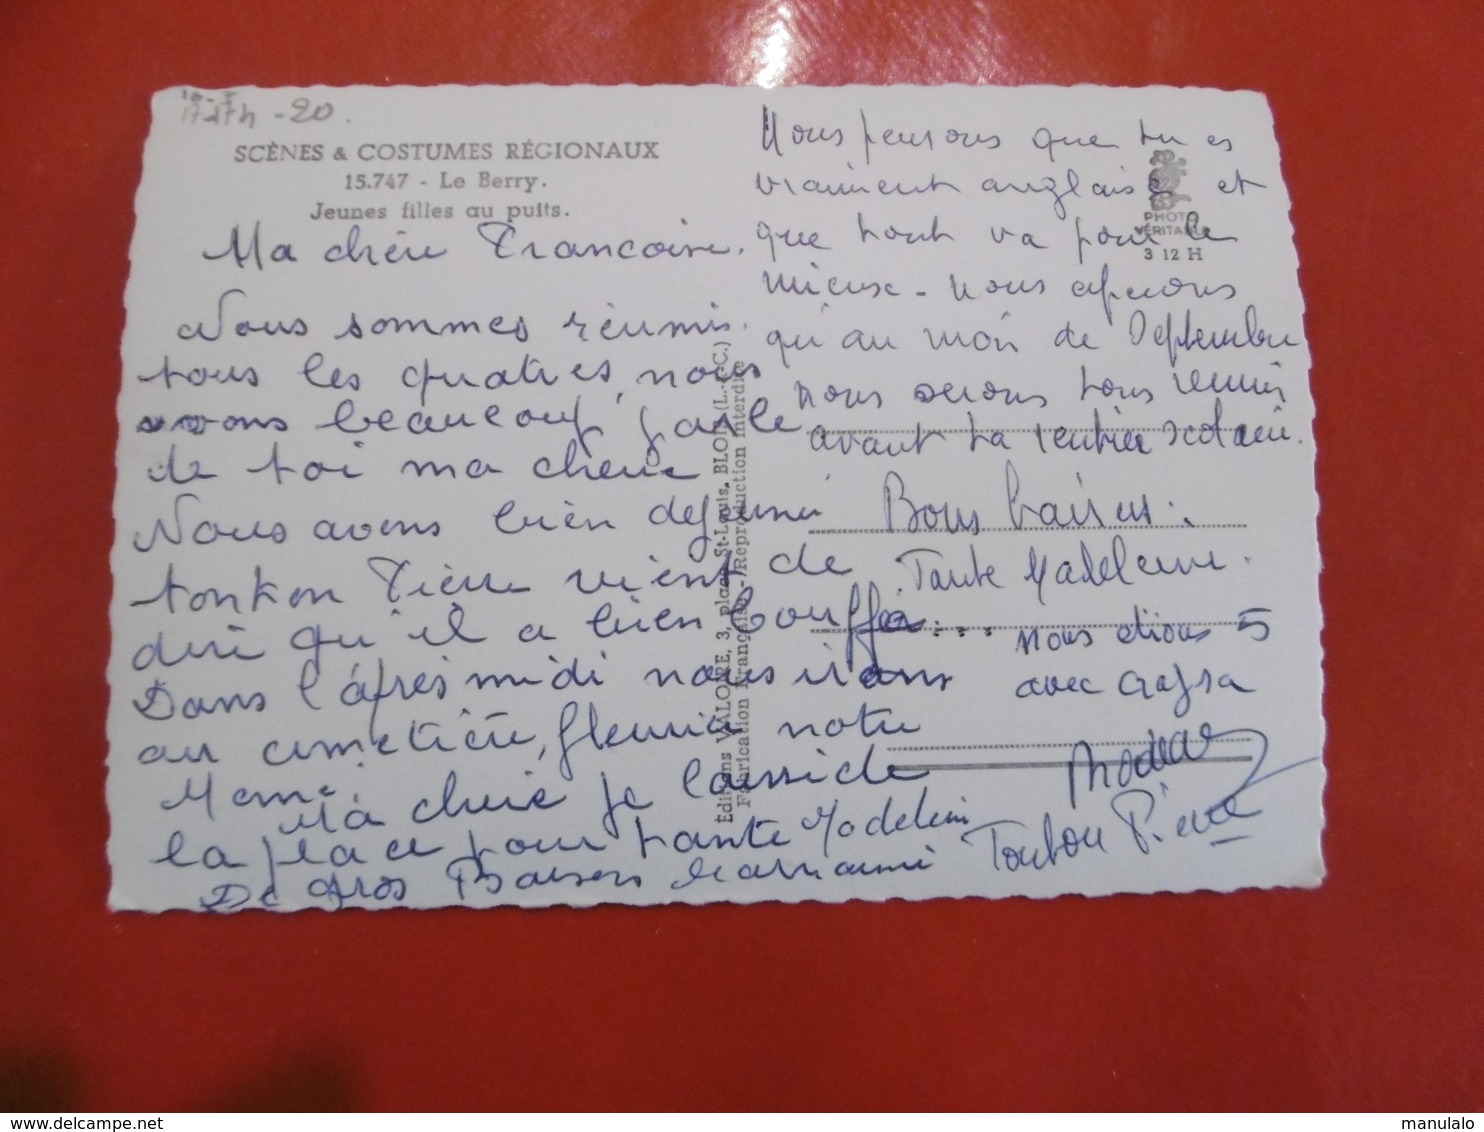 -20.
SCÈNES & COSTUMES RÉGIONAUX
15.747 - Le Berry.
Jeunes filles au puits.
Ma chère Francoise.
Nous sommes réunis
tous les quatres, nous
avons beaucoup parlé
de toi ma chérie
Nous avons bien dejeuné
tonton Pierre vient de
dire qu'il a bien bouffer...
Dans l'après midi nous irons
au cimetière, fleurir notre
Mémé.
Ma chérie je laisse de
la place pour tante Madeleine
De gros Baisers
Éditions VALOIRE, 3, place St-Louis, BLOIS (L.-&-C.)
Fabrication Française - Reproduction interdite
Nous pensons que tu es
vraiment anglaise et
que tout va pour le
mieux - nous espérons
qu'au mois de Septembre
nous serons tous réunis
avant la rentrée scolaire.
Bons baisers.
Tante Madeleine.
nous étions 5
avec
Tonton Pierre
PHOTO
VÉRITABLE
3 12 H
www.delcampe.net
manulalo